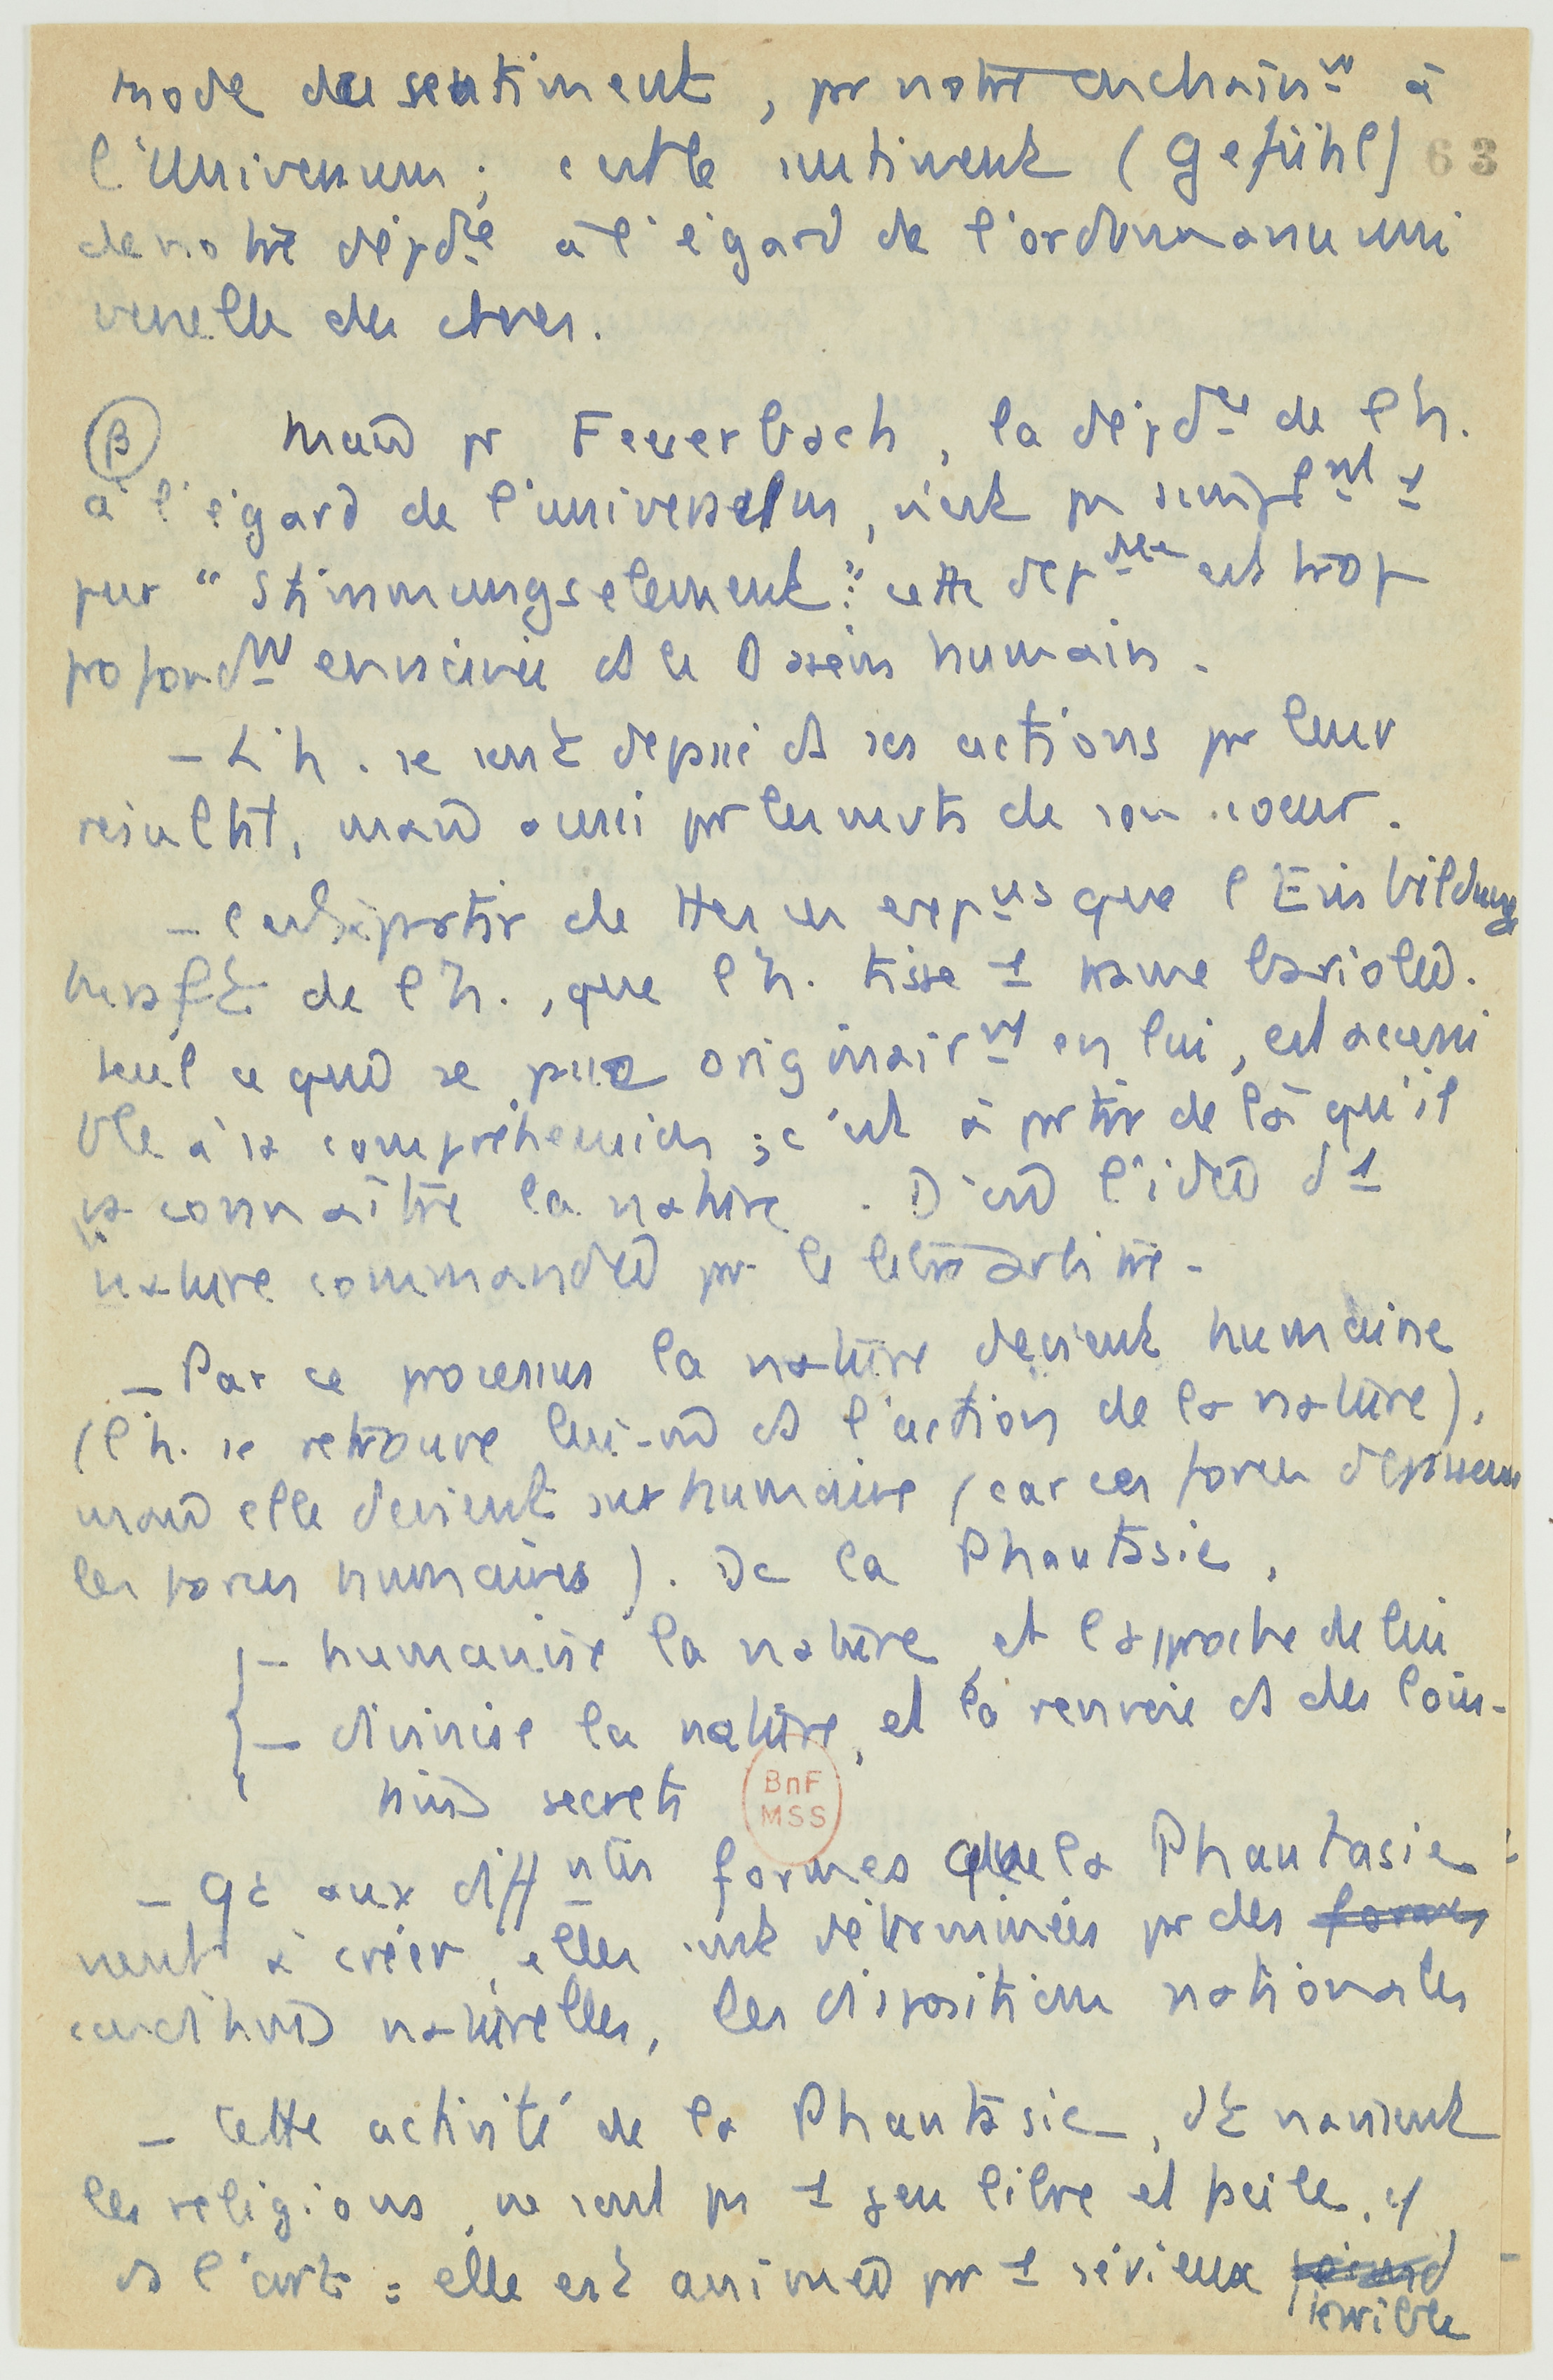 mode du sentiment, pr notre enchaînt à
l'Universum ; c'est le sentiment (Gefühl) 63
de notre dépdce à l'égard de l'ordonnance uni
verselle des choses.
β Mais pr Feuerbach, la dépdce de l'h.
à l'égard de l'universum, n'est pas simplemt 1
pur "Stimmungselement" : cette dépdce est trop
profondmt enracinée ds le Dasein humain.
- L'h. se sent dépassé ds ses actions pr leur
résultat, mais aussi pr les mvts de son coeur.
- C'est à partir de ces que l'Einbildung
de l'h., que l'h. tisse 1 trame bariolée.
Seul ce qui se passe originairmt en lui, est accessi
ble à sa compréhension ; c'est à partir de là qu'il
va connaître la nature. D'où l'idée d'1
nature commandée pr le libre arbitre.
- Par ce processus la nature devient humaine
(l'h. se retrouve lui-m ds l'action de la nature),
mais elle devient surhumaine (car ces forces dépassent
les forces humaines). Dc la Phantasie,
- humanise la nature, et l'approche de lui
- divinise la nature, et la renvoie ds des loin-
tains secrets
BnF
MSS
- Qt aux différentes formes que la Phantasie
vient à créer, elles sont déterminées pr des formes
conditions naturelles, les dispositions nationales
- Cette activité de la Phantasie, dt naissent
les religions, ne sont pas 1 jeu libre et facile, c/
ds l'art : elle est animée pr 1 sérieux
terrible